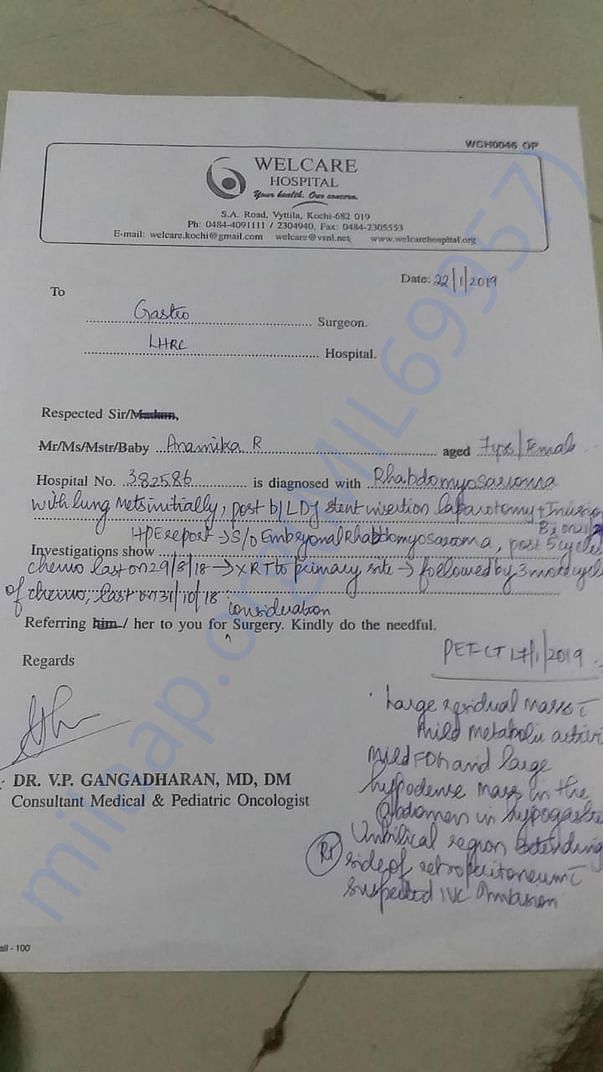 WCH0046 OP
WELCARE
HOSPITAL
Your health. Our concern.
S.A. Road, Vyttila, Kochi-682 019
Ph: 0484-4091111 / 2304940, Fax: 0484-2305553
E-mail: welcare.kochi@gmail.com welcare@vsnl.net www.welcarehospital.org
Date: 22/1/2019
To
Gastro Surgeon.
LHRC Hospital.
Respected Sir/Madam,
Mr/Ms/Mstr/Baby Anamika R aged 7yrs/Female
Hospital No. 382586 is diagnosed with Rhabdomyosarcoma
with lung mets initially, post b/L DJ stent insertion laparotomy +
Bx on 21/2
HPE report → S/O Embryonal Rhabdomyosarcoma, post 5 cycles
Investigations show
chemo last on 29/8/18 → XRT to primary site → followed by 3 more cycle
of chemo, last on 31/10/18.
consideration
Referring him / her to you for ^ Surgery. Kindly do the needful.
Regards
PET-CT 17/1/2019
. Large residual mass c̄
mild metabolic activi
mild FDG and large
hypodense mass in the
abdomen in hypogastric
Umbilical region extending
(Rt) side of retroperitoneum c̄
suspected IVC invasion
DR. V.P. GANGADHARAN, MD, DM
Consultant Medical & Pediatric Oncologist
all - 100
milaap.org(MIL69957)